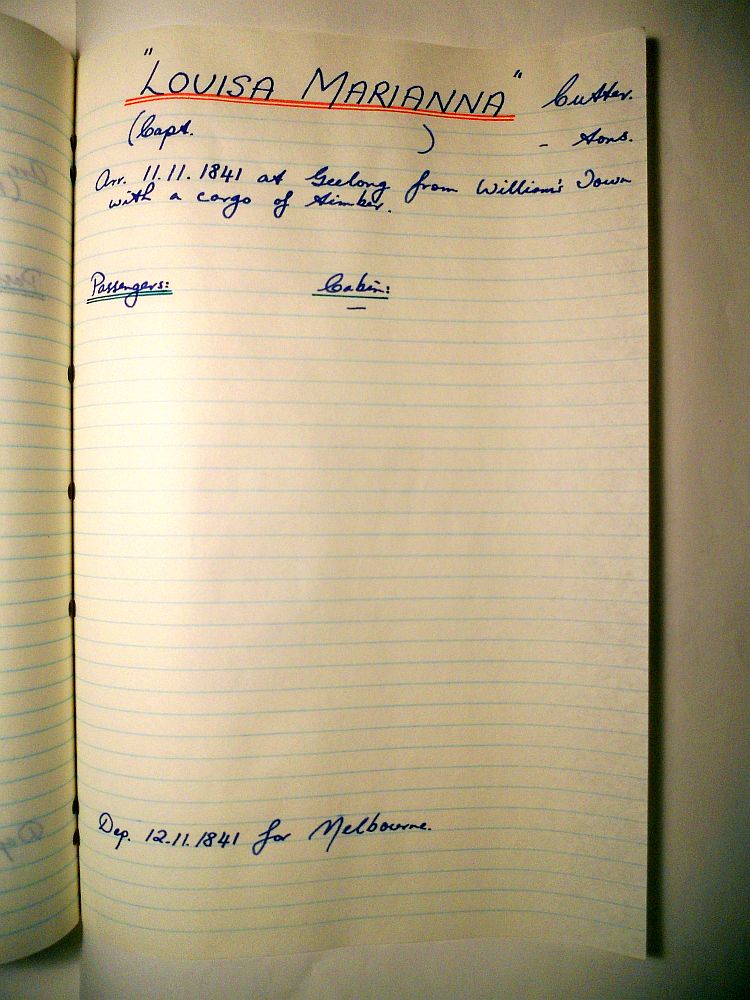 "LOUISA MARIANNA" Cutter.
(Capt. ) - tons.
Arr. 11.11.1841 at Geelong from William's Town
with a cargo of timber.
Passengers: Cabin:
—
Dep. 12.11.1841 for Melbourne.